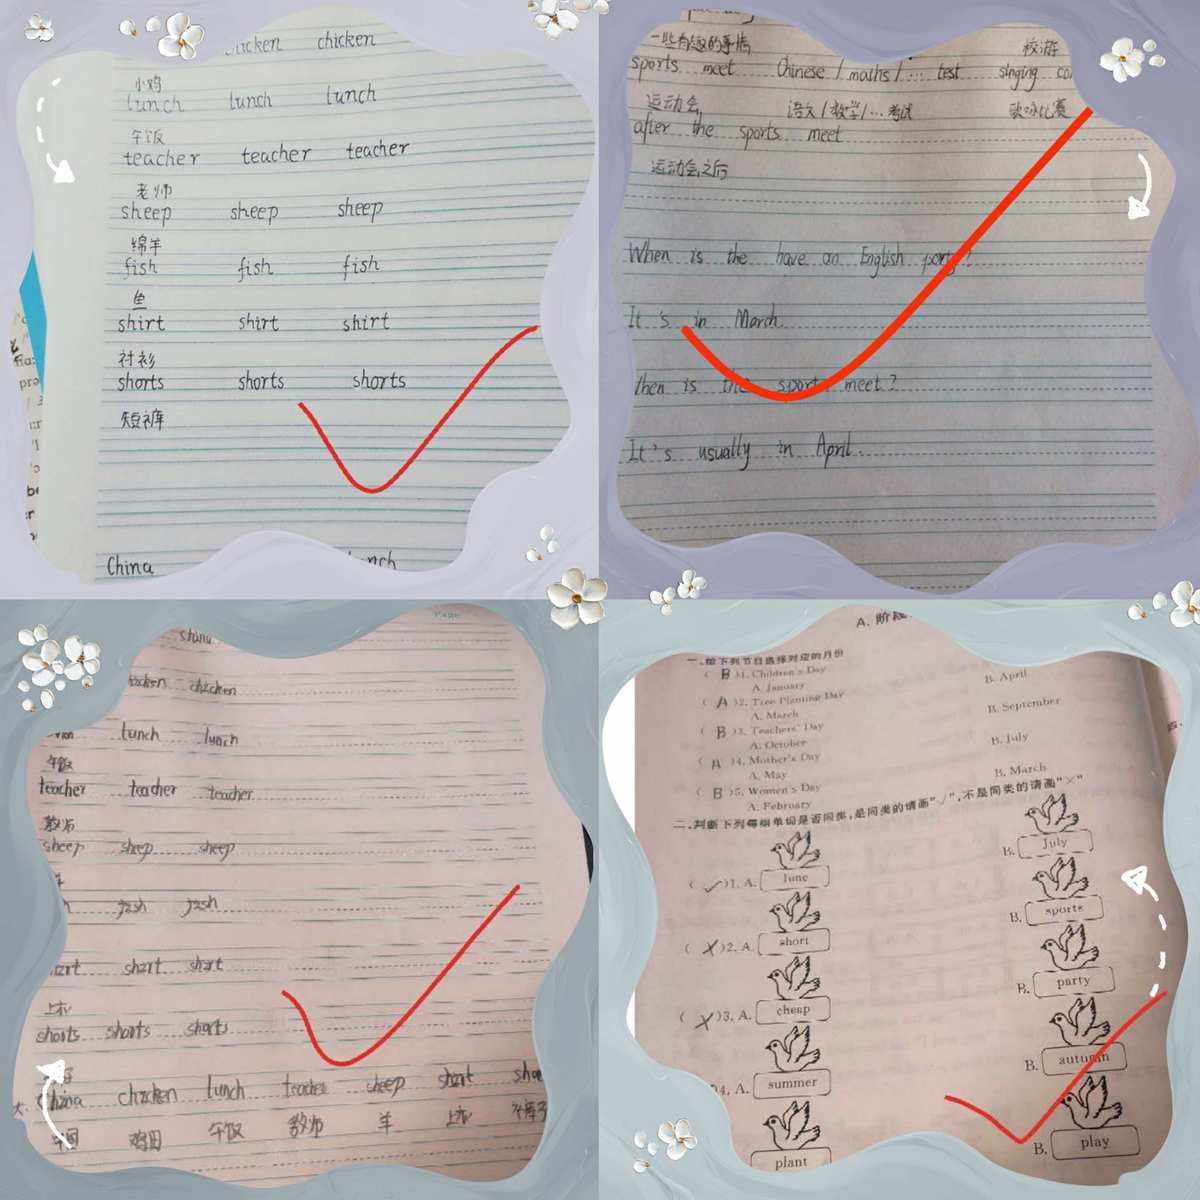 chicken chicken
小鸡
lunch lunch lunch
午饭
teacher teacher teacher
老师
sheep sheep sheep
绵羊
fish fish fish
鱼
shirt shirt shirt
衬衫
shorts shorts shorts
短裤
China
一些有趣的事情 校游
sports meet Chinese / maths / ... test singing co
运动会 语文/数学/...考试 歌咏比赛
after the sports meet
运动会之后
When is the have an English party?
It's in March.
When is the sports meet?
It's usually in April.
China
chicken chicken
lunch lunch
午饭
teacher teacher teacher
教师
sheep sheep sheep
fish fish
shirt shirt
上衣
shorts shorts shorts
China chicken lunch teacher sheep shirt
中国 午饭 教师 羊 上衣
A. 阶段
一、给下列节日选择对应的月份
( B )1. Children's Day
A. January B. April
( A )2. Tree Planting Day
A. March B. September
( B )3. Teachers' Day
A. October B. July
( A )4. Mother's Day
A. May B. March
( B )5. Women's Day
A. February
二、判断下列每组单词是否同类,是同类的请画"√",不是同类的请画"×"
( ✓ )1. A. June B. July
( X )2. A. short B. sports
( X )3. A. cheap B. party
)4. A. summer B. autumn
plant B. play